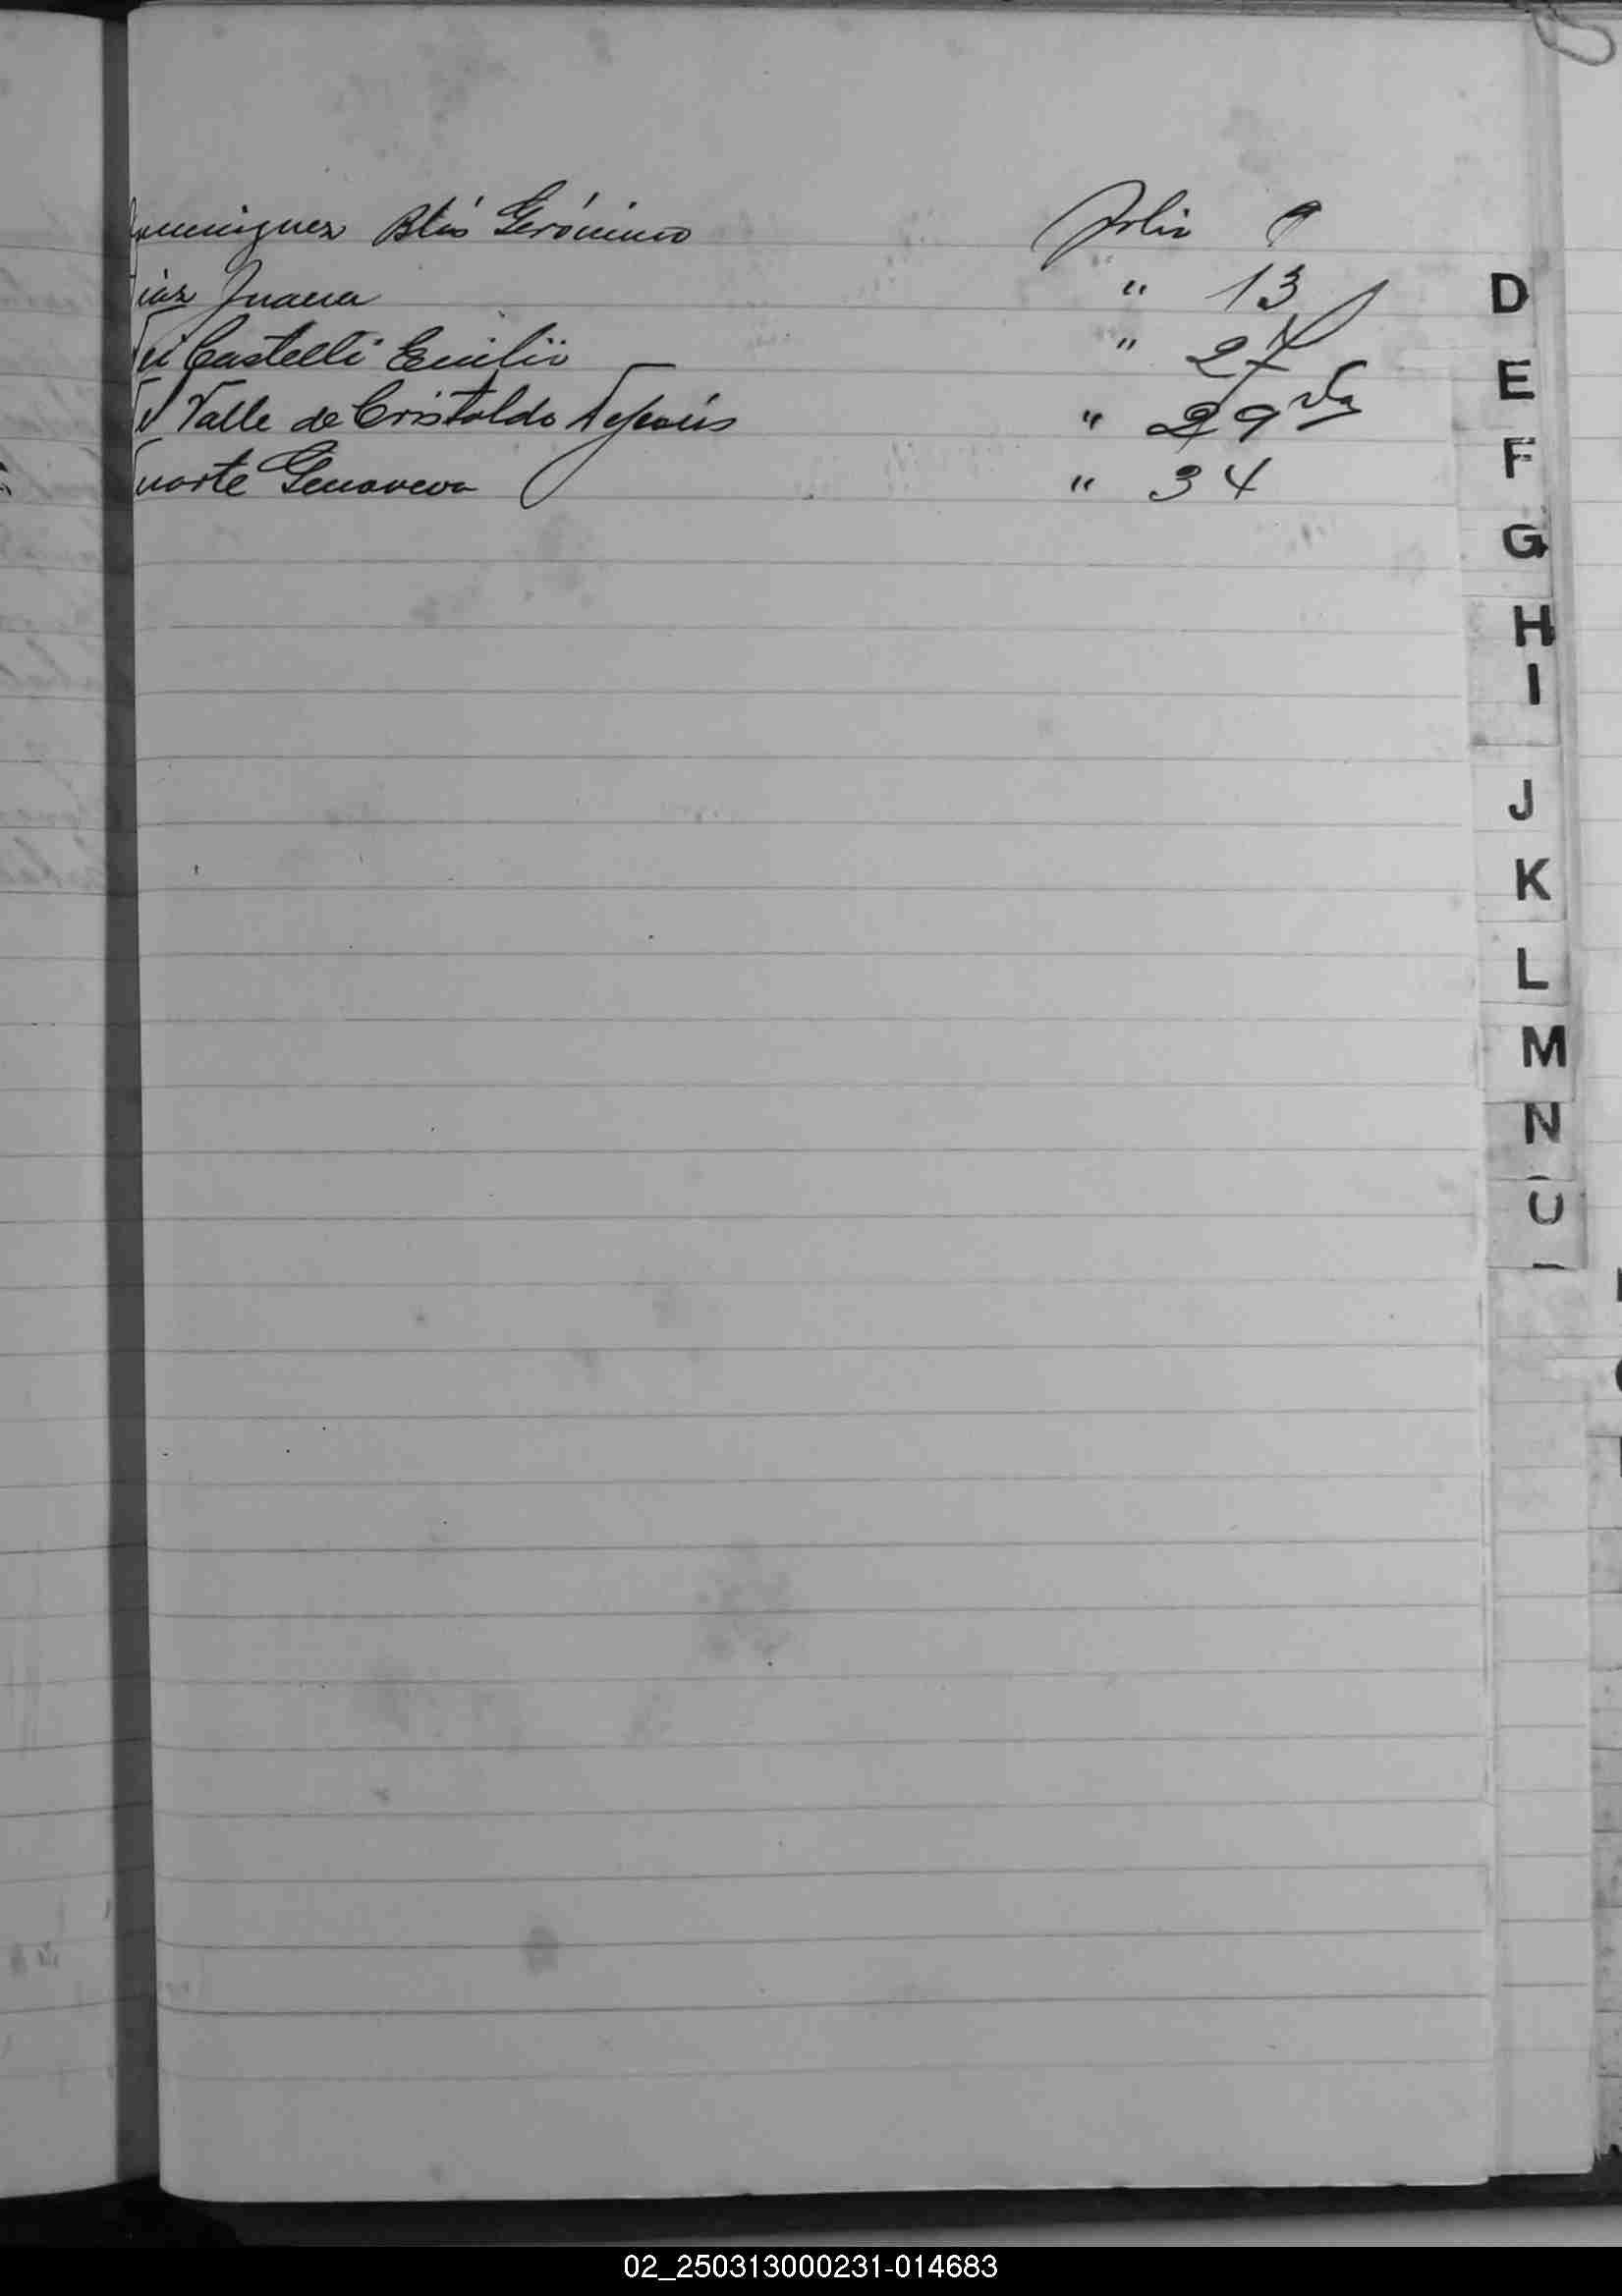 Dominguez Blás Gerónimo Folio 9
Diaz Juana " 13
Dei Castelli Emilio " 27
Del Valle de Cristaldo Jesús " 29 vta
Duarte Genoveva " 34
D
E
F
G
H
I
J
K
L
M
N
02_250313000231-014683